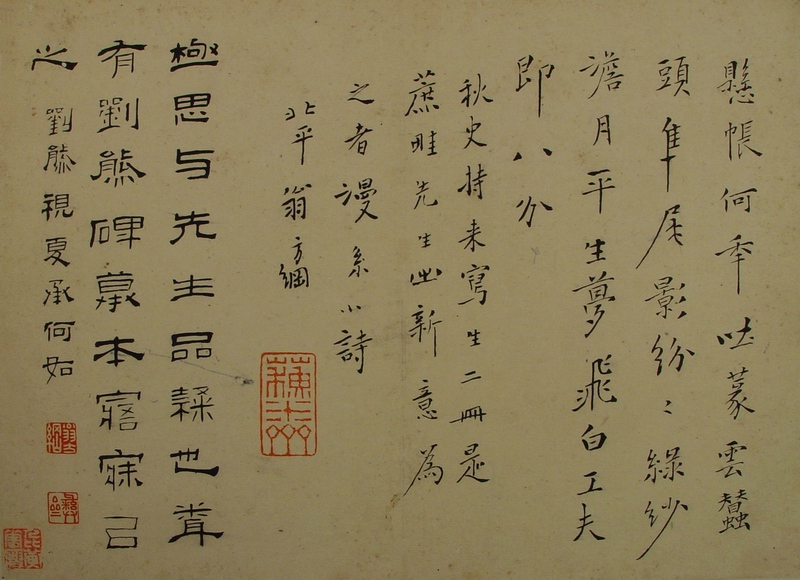 懸帳何秊吐篆雲蠶
頭隼尾影紛〻綠紗
澹月平生夢飛白工夫
即八分
秋史持来寫生二冊是
蔗畦先生出新意為
之者漫系小詩
北平翁方綱
蘇齋
極思与先生品隸也
有劉熊碑摹本寤寐㠯
之劉熊視夏承何如